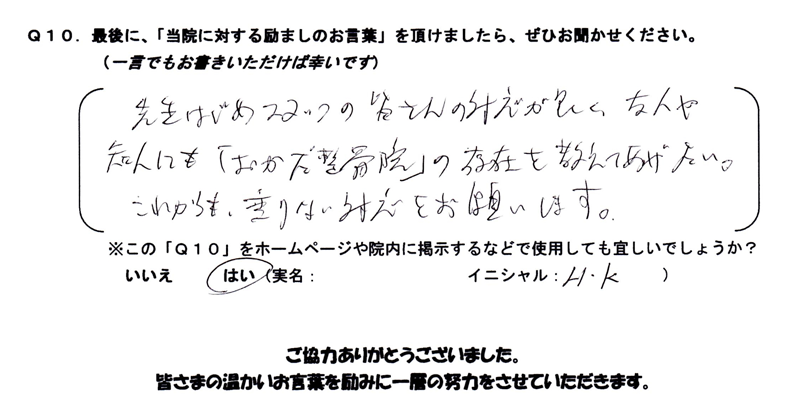 Q10. 最後に、「当院に対する励ましのお言葉」を頂けましたら、ぜひお聞かせください。
(一言でもお書きいただけば幸いです)
先生はじめスタッフの皆さんの対応が良く、友人や
知人にも「おかだ整骨院」の存在を教えてあげたい。
これからも、変りない対応をお願いします。
※この「Q10」をホームページや院内に掲示するなどで使用しても宜しいでしょうか?
いいえ はい (実名: イニシャル: H・K )
ご協力ありがとうございました。
皆さまの温かいお言葉を励みに一層の努力をさせていただきます。